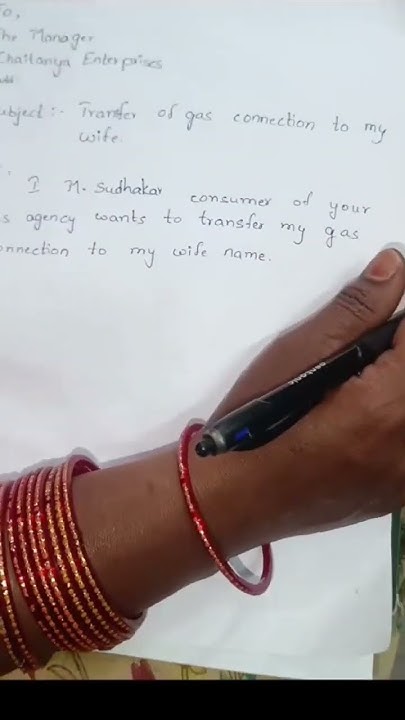 To,
The Manager
Chaitanya Enterprises
Subject:- Transfer of gas connection to my
wife.
I M. Sudhakar consumer of your
gas agency wants to transfer my gas
connection to my wife name.